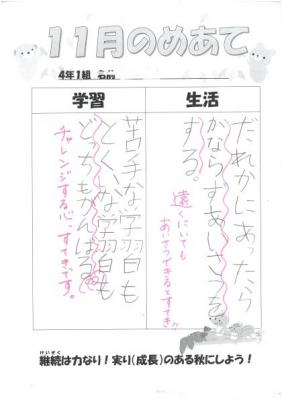 11月のめあて
4年1組 名前
生活
だれかにあったら
かならずあいさつを
する。
遠くにいても
あいさつできるとすてき!!
学習
苦手な学習も
とくいな学習も
どっちもがんばる。
チャレンジする心、すてきです。
けいぞく
継続は力なり!実り(成長)のある秋にしよう!